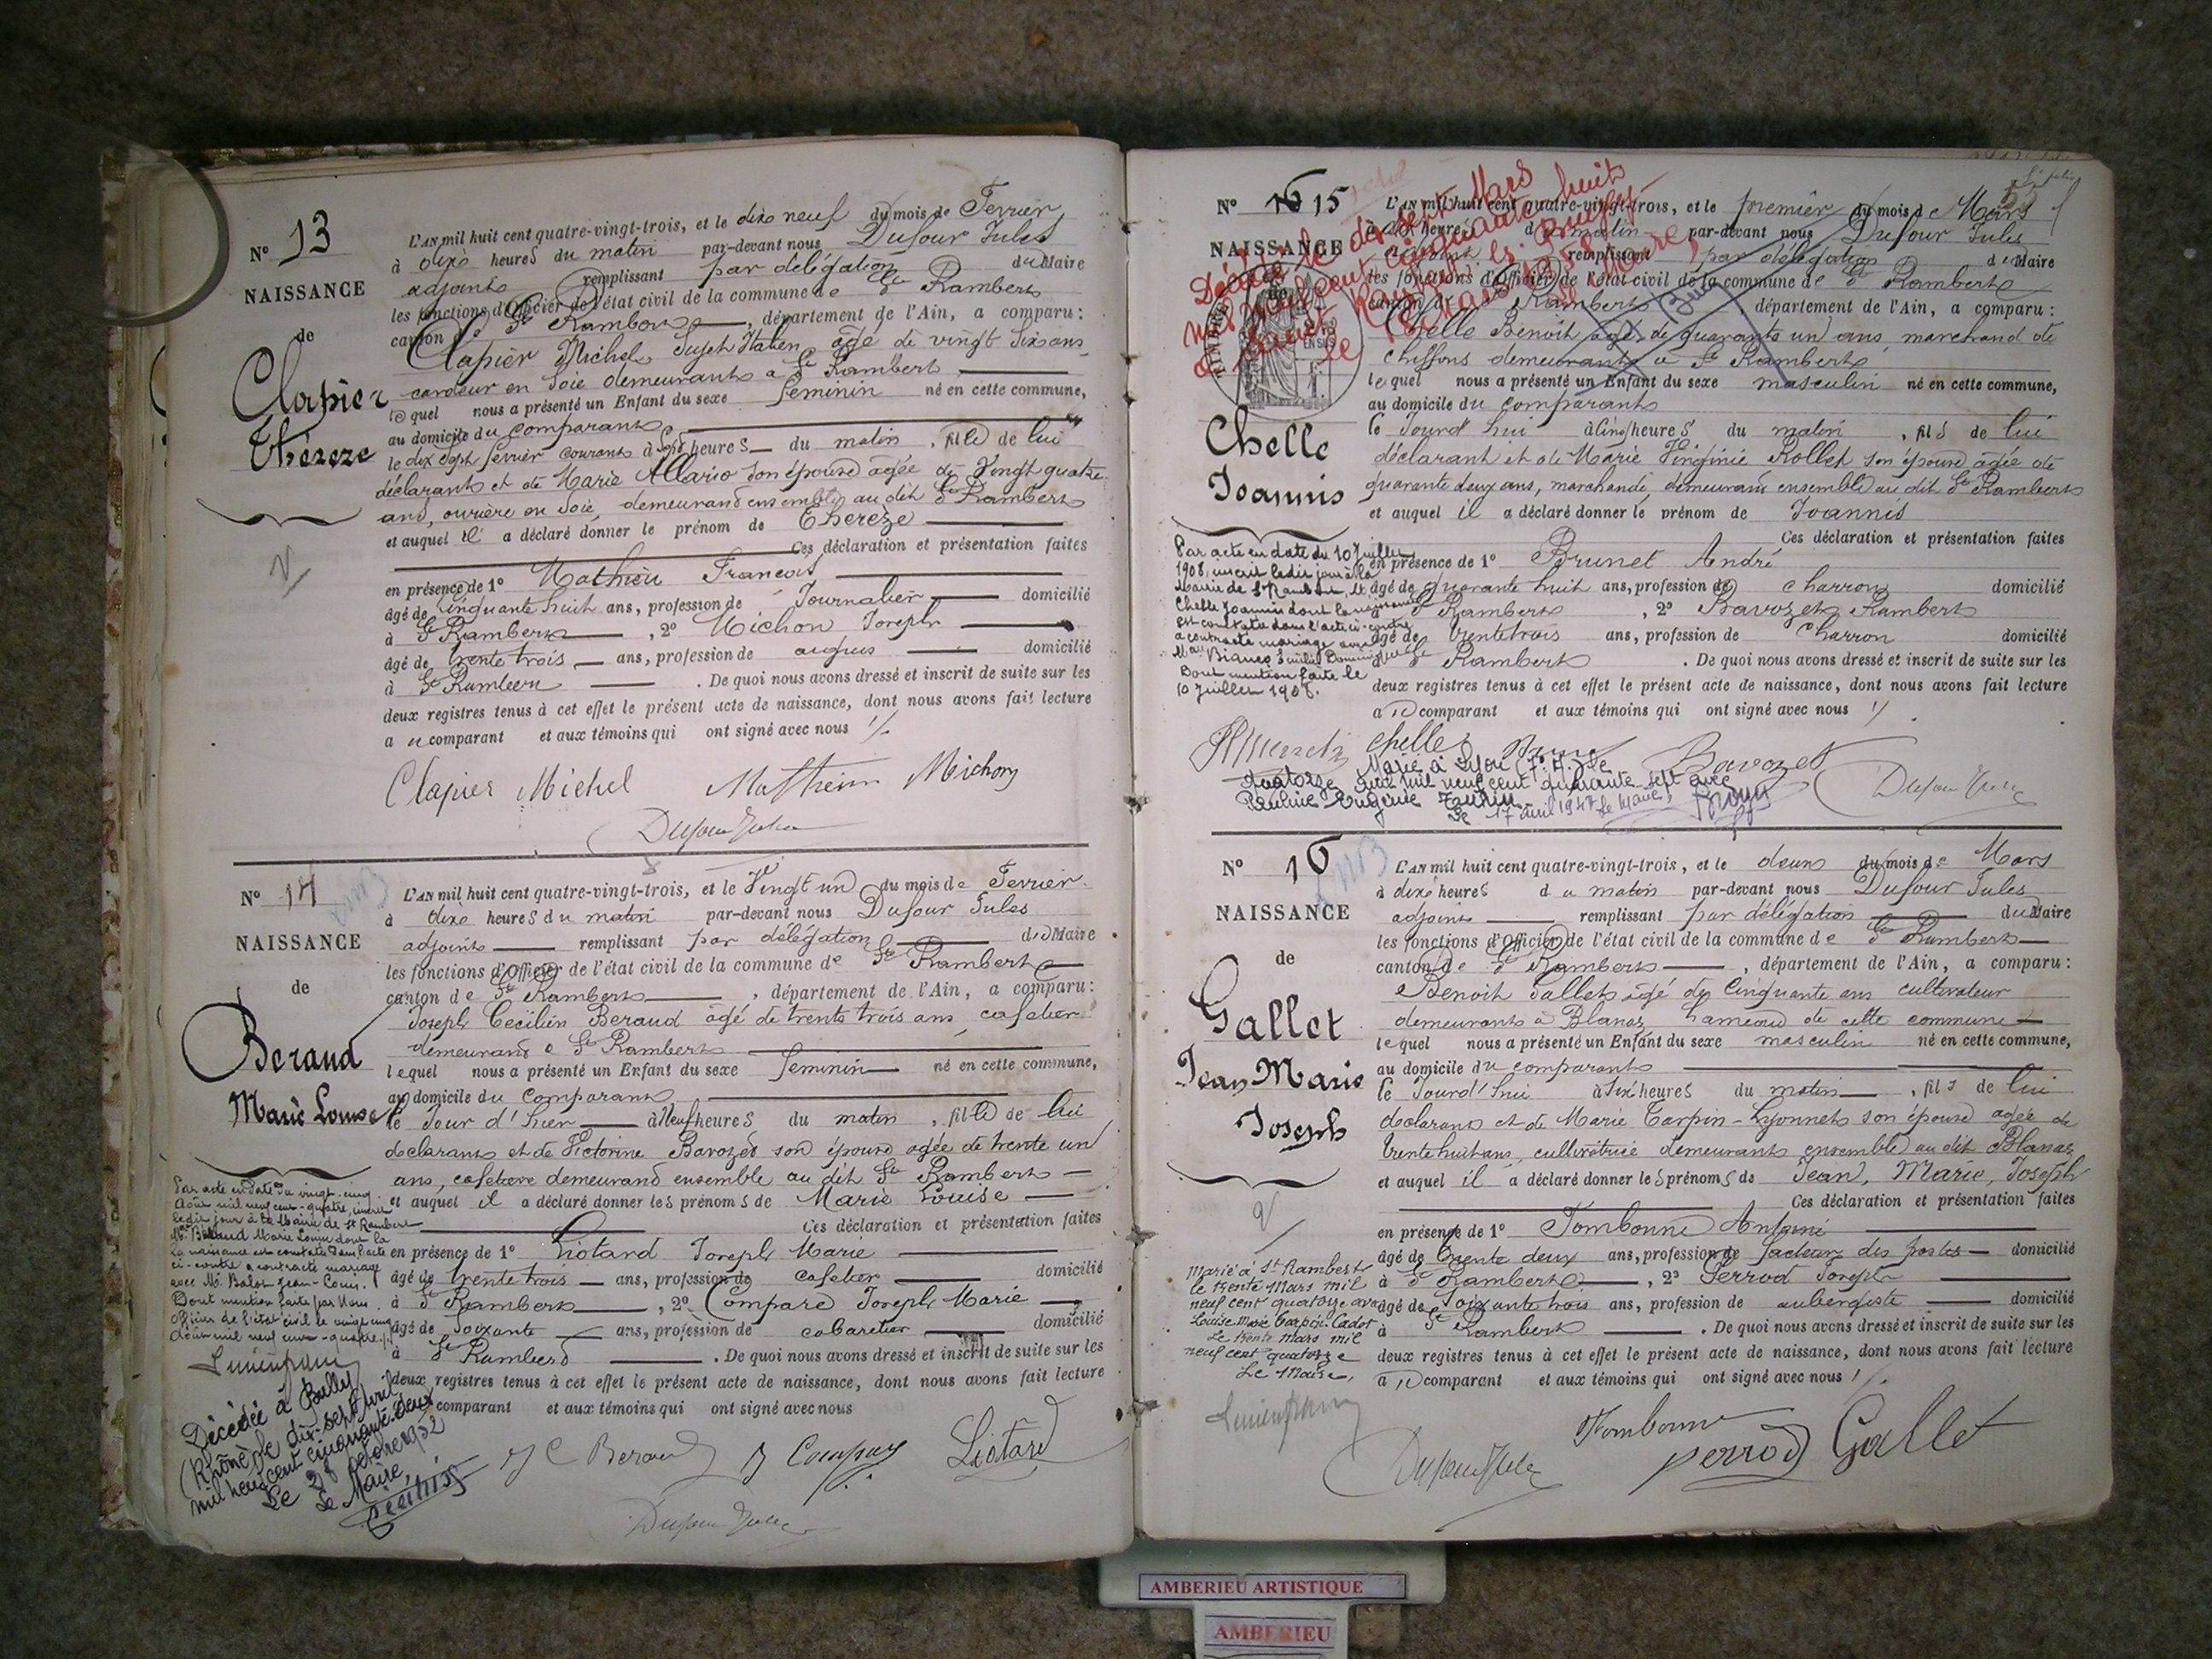 N° 13
NAISSANCE
de
Clapier
Thérèze
L'AN mil huit cent quatre-vingt-trois, et le dixe neuf du mois de Fevrier
à dixe heures du matin par-devant nous Dufour Jules
adjoint remplissant par délégation du Maire
les fonctions d'Officier de l'état civil de la commune de St Rambert
canton de St Rambert, département de l'Ain, a comparu:
Clapier Michel, Sujet Italien âgé de vingt six ans
cardeur en Soie demeurant à St Rambert
lequel nous a présenté un Enfant du sexe feminin né en cette commune,
au domicile du comparant
le dix sept fevrier courant à heures du matin, fille de lui
déclarant et de Marie Allario son épouse âgée de Vingt quatre
ans, ouvrière en Soie, demeurand ensemble au dit St Rambert
et auquel il a déclaré donner le prénom de Therèze
Ces déclaration et présentation faites
en présence de 1° Mathieu François
âgé de Cinquante huit ans, profession de Journalier domicilié
à St Rambert, 2° Michon Joseph
âgé de trente trois ans, profession de domicilié
à St Rambert. De quoi nous avons dressé et inscrit de suite sur les
deux registres tenus à cet effet le présent acte de naissance, dont nous avons fait lecture
au comparant et aux témoins qui ont signé avec nous
Clapier Michel Mathieu Michon
Dufour Jules
N° 14
NAISSANCE
de
Beraud
Marie Louise
L'AN mil huit cent quatre-vingt-trois, et le Vingt un du mois de Fevrier
à dixe heures du matin par-devant nous Dufour Jules
adjoint remplissant par délégation du Maire
les fonctions d'Officier de l'état civil de la commune de St Rambert
canton de St Rambert, département de l'Ain, a comparu:
Joseph Cecilien Beraud âgé de trente trois ans cafetier
demeurand à St Rambert
lequel nous a présenté un Enfant du sexe feminin né en cette commune,
au domicile du comparant
le Jour d'hier à Neuf heures du matin, fille de lui
declarant et de Victorine Bavozed son épouse agée de trente un
ans, cafetiere demeurand ensemble au dit St Rambert
et auquel il a déclaré donner les prénoms de Marie Louise
Ces déclaration et présentation faites
en présence de 1° Liotard Joseph Marie
âgé de trente trois ans, profession de cafetier domicilié
à St Rambert, 2° Compare Joseph Marie
âgé de Soixante ans, profession de cabaretier domicilié
à St Rambert. De quoi nous avons dressé et inscrit de suite sur les
deux registres tenus à cet effet le présent acte de naissance, dont nous avons fait lecture
comparant et aux témoins qui ont signé avec nous
Par acte en date du vingt-cinq
Août mil neuf cent-quatre, inscrit
ledit jour à la Mairie de St Rambert
Beraud Marie Louise dont la
la naissance est constatée dans l'acte
ci-contre a contracté mariage
avec Mr. Balot Jean-Louis.
Dont mention faite par Nous
Officier de l'état civil le vingt cinq
Août mil neuf cent-quatre
Décédée à Bully
(Rhône) le dix-sept Avril
mil neuf cent cinquante-deux
Le 28 octobre 1952
Le Maire,
J C Beraud J Compare Liotard
Dufour Jules
N° 16 15
NAISSANCE
de
Chelle
Joannis
L'AN mil huit cent quatre-vingt-trois, et le premier du mois de Mars
à dix heures du matin par-devant nous Dufour Jules
adjoint remplissant par délégation du Maire
les fonctions d'Officier de l'état civil de la commune de St Rambert
canton de St Rambert département de l'Ain, a comparu:
Chelle Benoit âgé de quarante un ans, marchand de
chiffons demeurant à St Rambert
lequel nous a présenté un Enfant du sexe masculin né en cette commune,
au domicile du comparant
le Jourd'hui à Cinq heures du matin, fils de lui
déclarant et de Marie Virginie Rollet son épouse âgée de
quarante deux ans, marchande, demeurant ensemble au dit St Rambert
et auquel il a déclaré donner le prénom de Joannis
Ces déclaration et présentation faites
en présence de 1° Brunet André
âgé de quarante huit ans, profession de charron domicilié
à St Rambert, 2° Bavozet Rambert
âgé de trente trois ans, profession de Charron domicilié
à St Rambert. De quoi nous avons dressé et inscrit de suite sur les
deux registres tenus à cet effet le présent acte de naissance, dont nous avons fait lecture
au comparant et aux témoins qui ont signé avec nous
Par acte en date du 10 Juillet
1908, inscrit ledit jour à la
Mairie de St Rambert, le
Chelle Joannis dont la naissance
est constatée dans l'acte ci-contre
a contracté mariage avec
Dont mention faite le
10 Juillet 1908.
Chelle Bavozet
Marié à Lyon (7e A.) le
quatorze mil neuf cent quarante sept avec
Pauline Eugénie
Le 17 avril 1947 Le Maire,
Dufour Jules
N° 16
NAISSANCE
de
Gallet
Jean Marie
Joseph
L'AN mil huit cent quatre-vingt-trois, et le deux du mois de Mars
à dixe heures du matin par-devant nous Dufour Jules
adjoint remplissant par délégation du Maire
les fonctions d'Officier de l'état civil de la commune de St Rambert
canton de St Rambert, département de l'Ain, a comparu:
Benoit Gallet âgé de Cinquante ans cultivateur
demeurant à Blanaz, hameau de cette commune
lequel nous a présenté un Enfant du sexe masculin né en cette commune,
au domicile du comparant
le Jourd'hui à Six heures du matin, fils de lui
declarant et de Marie Carpin-Lyonnet son épouse agée de
trente huit ans, cultivatrice demeurant ensemble au dit Blanaz
et auquel il a déclaré donner les prénoms de Jean, Marie, Joseph
Ces déclaration et présentation faites
en présence de 1° Tombonne Antoine
âgé de trente deux ans, profession de facteur des postes domicilié
à St Rambert, 2° Perrod Joseph
âgé de Soixante trois ans, profession de aubergiste domicilié
à St Rambert. De quoi nous avons dressé et inscrit de suite sur les
deux registres tenus à cet effet le présent acte de naissance, dont nous avons fait lecture
au comparant et aux témoins qui ont signé avec nous
Marié à St Rambert
le trente Mars mil
neuf cent quatorze avec
Louise Marie Carpin-Cadot
Le trente Mars mil
neuf cent quatorze
Le Maire,
Tombonne
Dufour Jules Perrod Gallet
AMBERIEU ARTISTIQUE
AMBERIEU